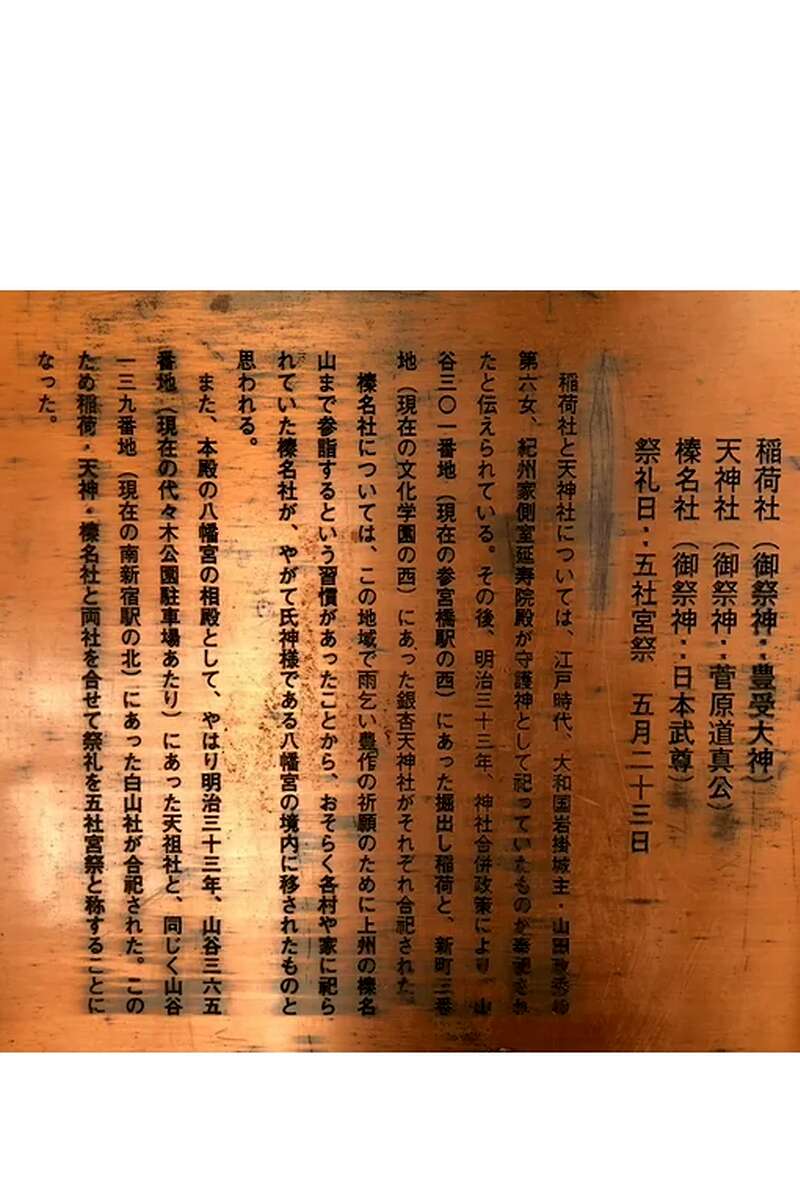 稲荷社（御祭神：豊受大神）
天神社（御祭神：菅原道真公）
榛名社（御祭神：日本武尊）
祭礼日：五社宮祭　五月二十三日
稲荷社と天神社については、江戸時代、大和国岩掛城主・山田
第六女、紀州家側室延寿院殿が守護神として祀っていたものが奉祀され
たと伝えられている。その後、明治三十三年、神社合併政策により、山
谷三〇一番地（現在の参宮橋駅の西）にあった堀出し稲荷と、新町三番
地（現在の文化学園の西）にあった銀杏天神社がそれぞれ合祀された。
榛名社については、この地域で雨乞い豊作の祈願のために上州の榛名
山まで参詣するという習慣があったことから、おそらく各村や家に祀ら
れていた榛名社が、やがて氏神様である八幡宮の境内に移されたものと
思われる。
また、本殿の八幡宮の相殿として、やはり明治三十三年、山谷三六五
番地（現在の代々木公園駐車場あたり）にあった天祖社と、同じく山谷
一三九番地（現在の南新宿駅の北）にあった白山社が合祀された。この
ため稲荷・天神・榛名社と両社を合せて祭礼を五社宮祭と称することに
なった。